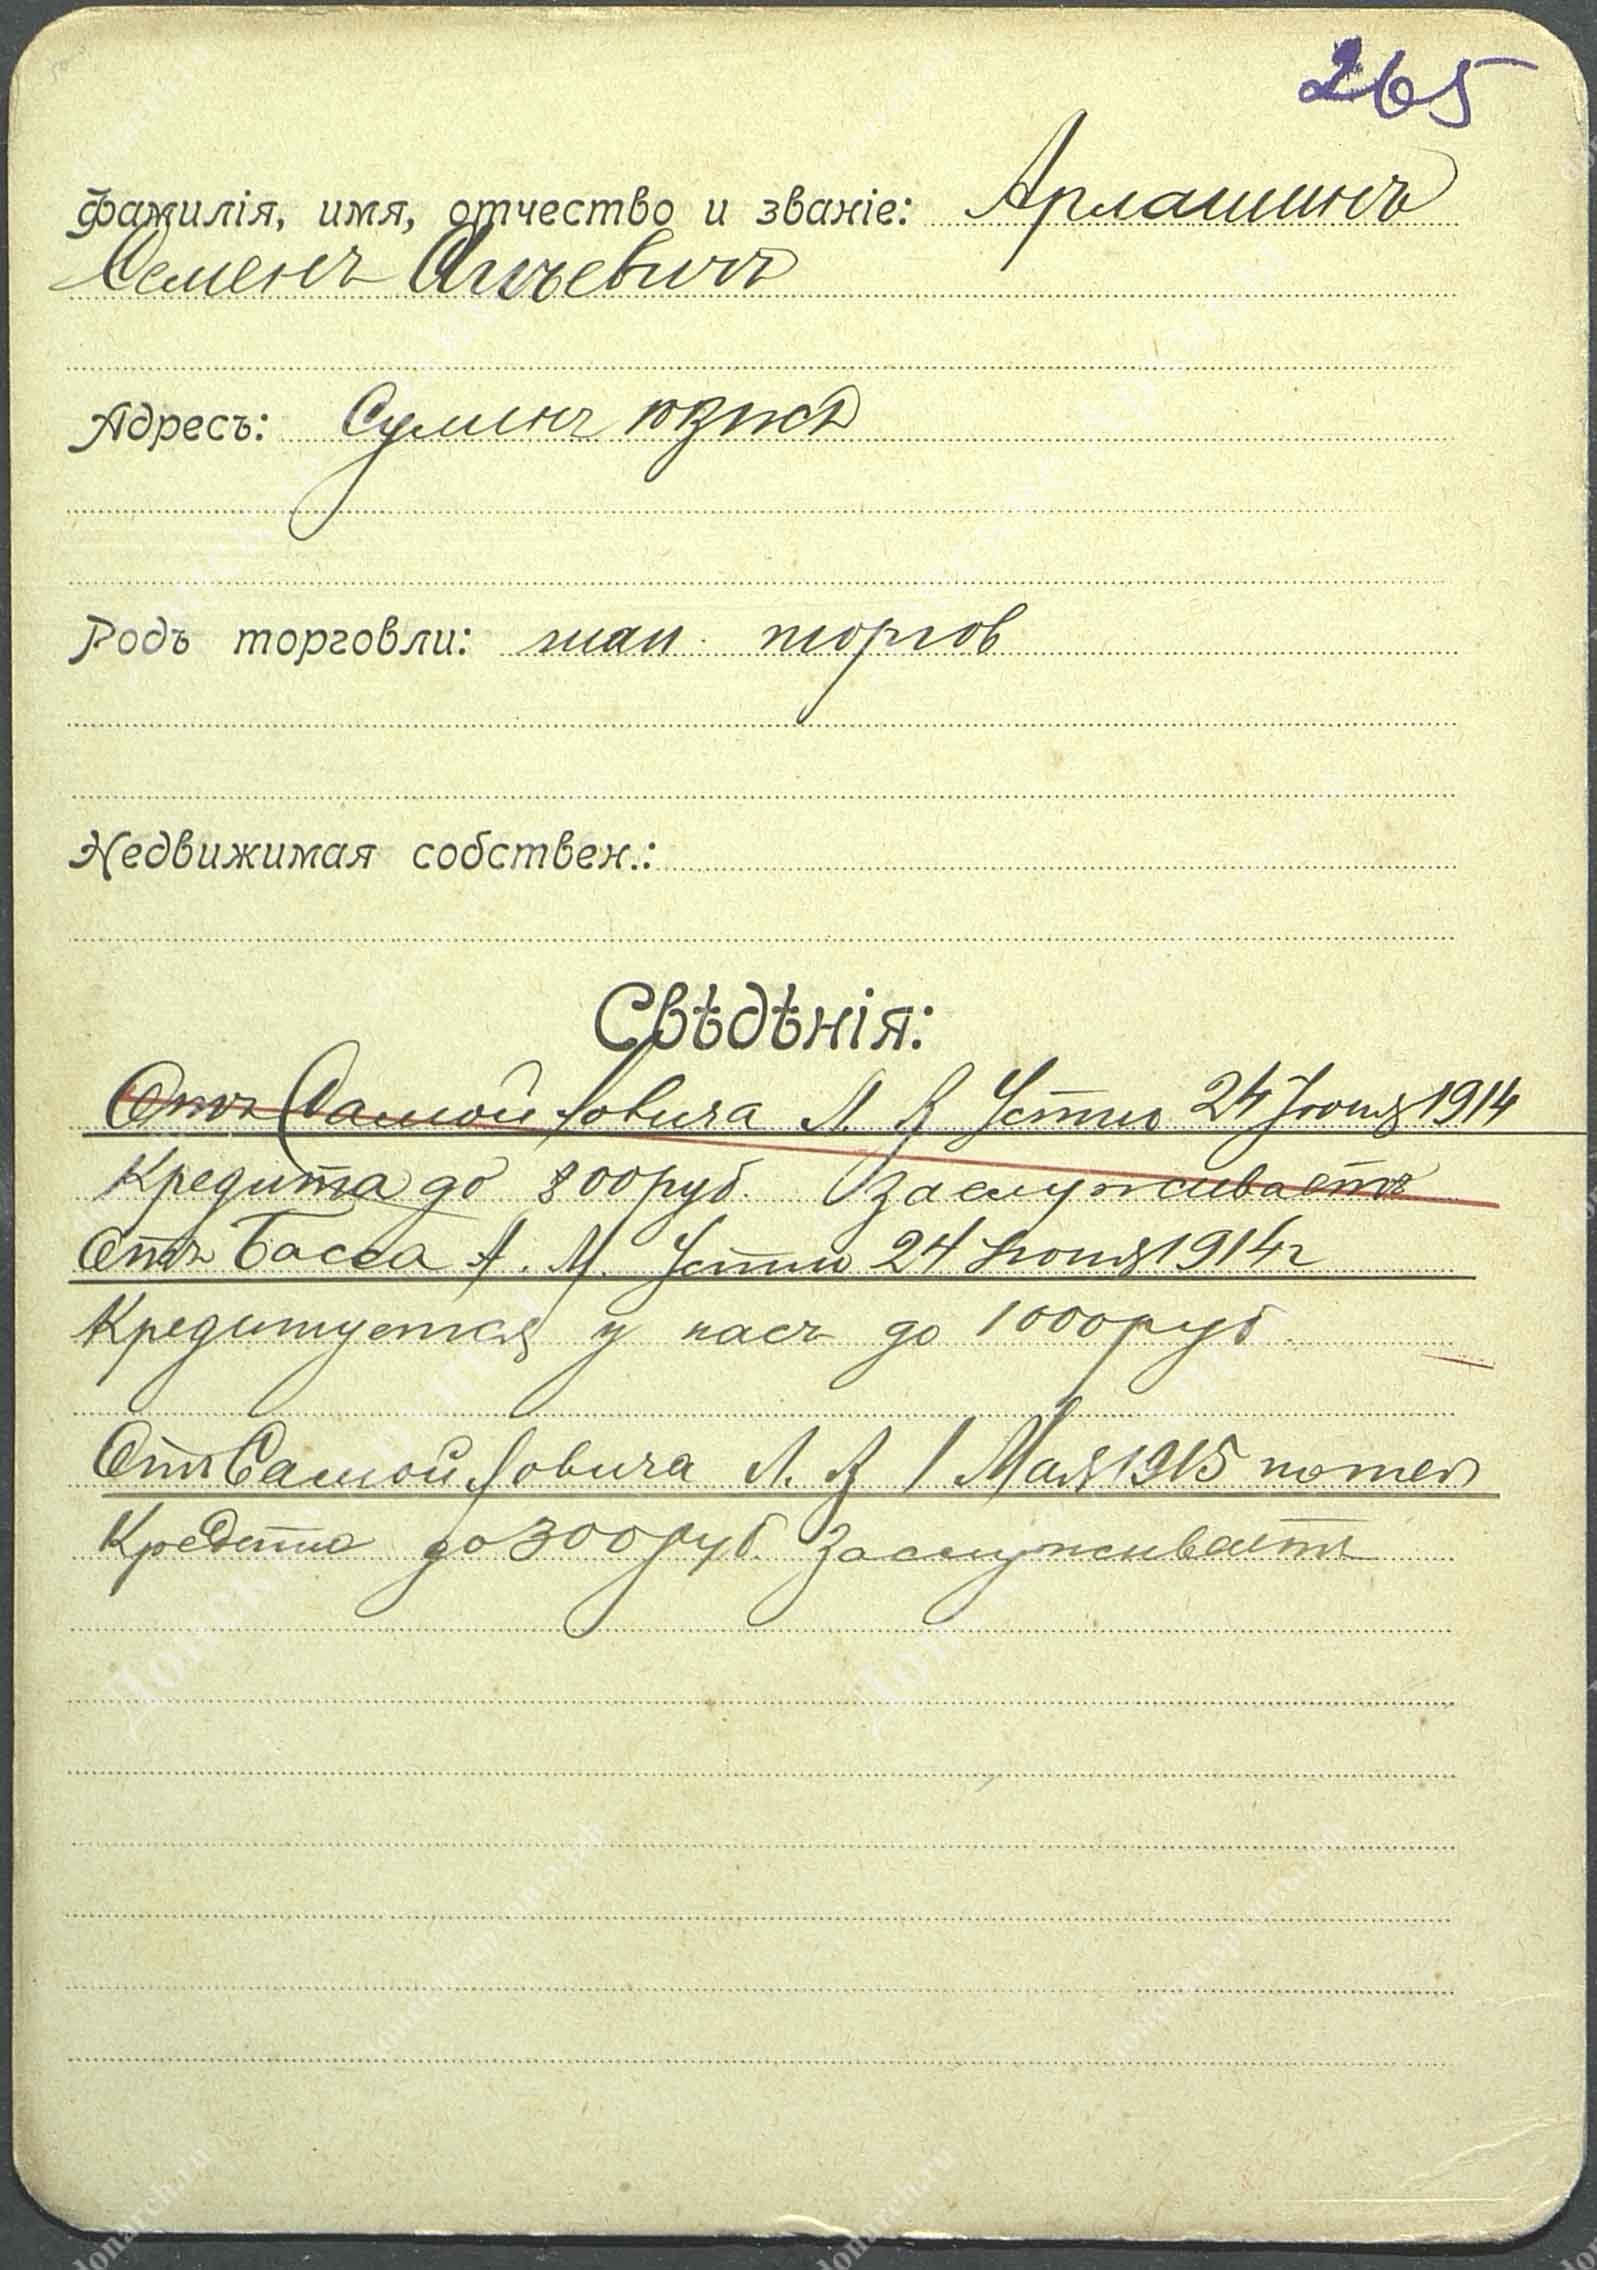 265
Фамилія, имя, отчество и званіе: Арлашинъ
Семенъ
Адресъ: Сулинъ
Родъ торговли: торгов
Недвижимая собствен.:
Свѣдѣнія:
Отъ Самойловича Л. Я Устно 24 Іюня 1914
Кредита до 800 руб. заслуживаетъ
Отъ Басса А. М. Устно 24 Іюня 1914 г
Кредитуется у насъ до 1000 руб.
Отъ Самойловича Л. Я 1 Мая 1915
Кредита до 300 руб. заслуживаетъ
donarch.ru